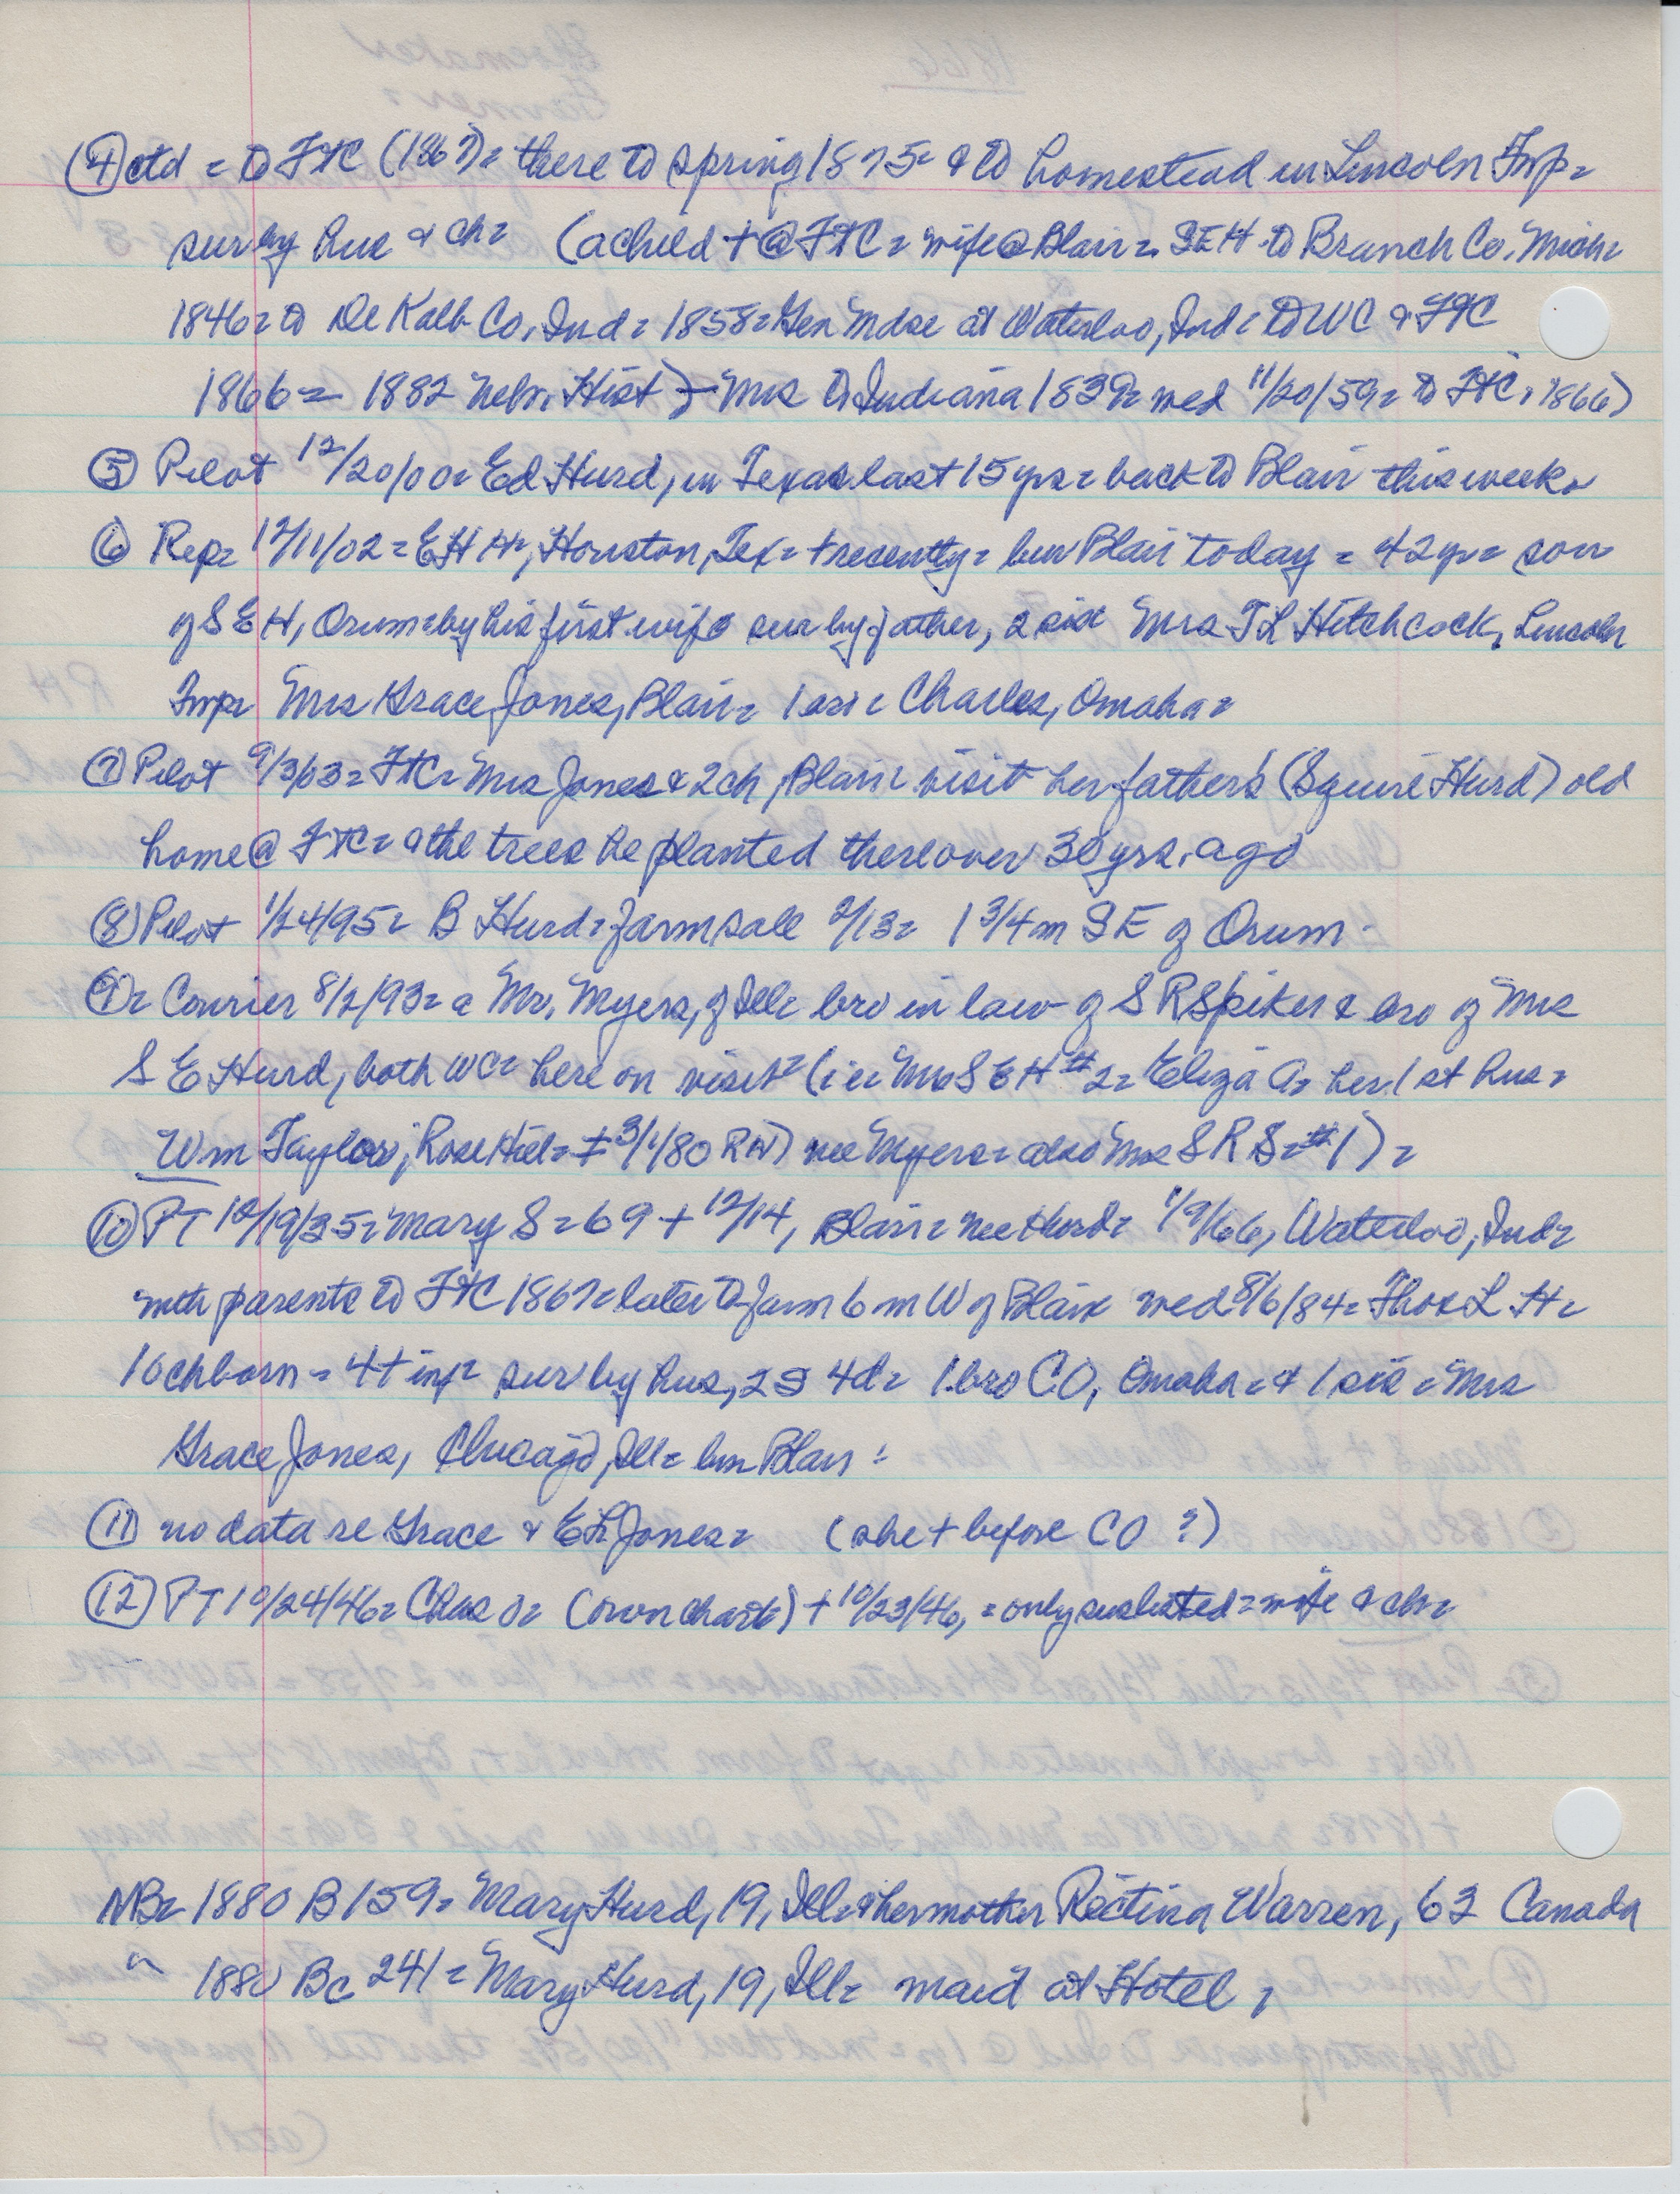 ④ ctd = to FTC (1867) = there to spring 1875 = & to homestead in Lincoln Twp =
sur by hus & ch = (a child + @ FTC = wife @ Blair = SEH to Branch Co. Mich =
1846 = to De Kalb Co, Ind = 1858 = Gen Mdse at Waterloo, Ind = to WC & FTC
1866 = 1882 Nebr. Hist) - Mrs to Indiana 1839 = wed 11/20/59 = to FTC, 1866)
⑤ Pilot 12/20/00 = Ed Hurd, in Texas last 15 yrs = back to Blair this week =
⑥ Rep = 12/11/02 = E H H, Houston, Tex = + recently = bur Blair today = 42 yr = son
of S E H, Orum = by his first wife sur by father, 2 sis Mrs T L Hitchcock, Lincoln
Twp = Mrs Grace Jones, Blair = 1 bro = Charles, Omaha =
⑦ Pilot 9/3/03 = FTC = Mrs Jones & 2 ch, Blair = visit her father's (Squire Hurd) old
home @ FTC = & the trees he planted there over 30 yrs. ago
⑧ Pilot 1/24/95 = B Hurd = farm sale 2/13 = 1 3/4 m SE of Orum -
⑨ = Courier 8/2/93 = a Mr. Myers, of Ill = bro in law of S R Spiker & bro of Mrs
S E Hurd, both WC = here on visit = (i e = Mrs S E H #2 = Eliza A = her 1st hus =
Wm Taylor, Rose Hill = + 3/1/80 RH) nee Myers = also Mrs S R S = #1) =
⑩ PT 12/19/35 = Mary S = 69 + 12/14, Blair = nee Hurd = 1/9/66, Waterloo, Ind =
with parents to FTC 1867 = later to farm 6 m W of Blair wed 8/6/84 = Thos L H =
10 ch born = 4 + inf = sur by hus, 2 S 4 d = 1 bro C O, Omaha = & 1 sis = Mrs
Grace Jones, Chicago, Ill = bur Blair =
⑪ no data re Grace & E Jones = (she + before CO ?)
⑫ PT 10/24/46 = Chas O = (own chart) + 10/23/46, = only sus listed = wife & ch =
NB = 1880 B 159 = Mary Hurd, 19, Ill = & her mother Warren, 63 Canada
" 1880 Bc 241 = Mary Hurd, 19, Ill = maid at Hotel =